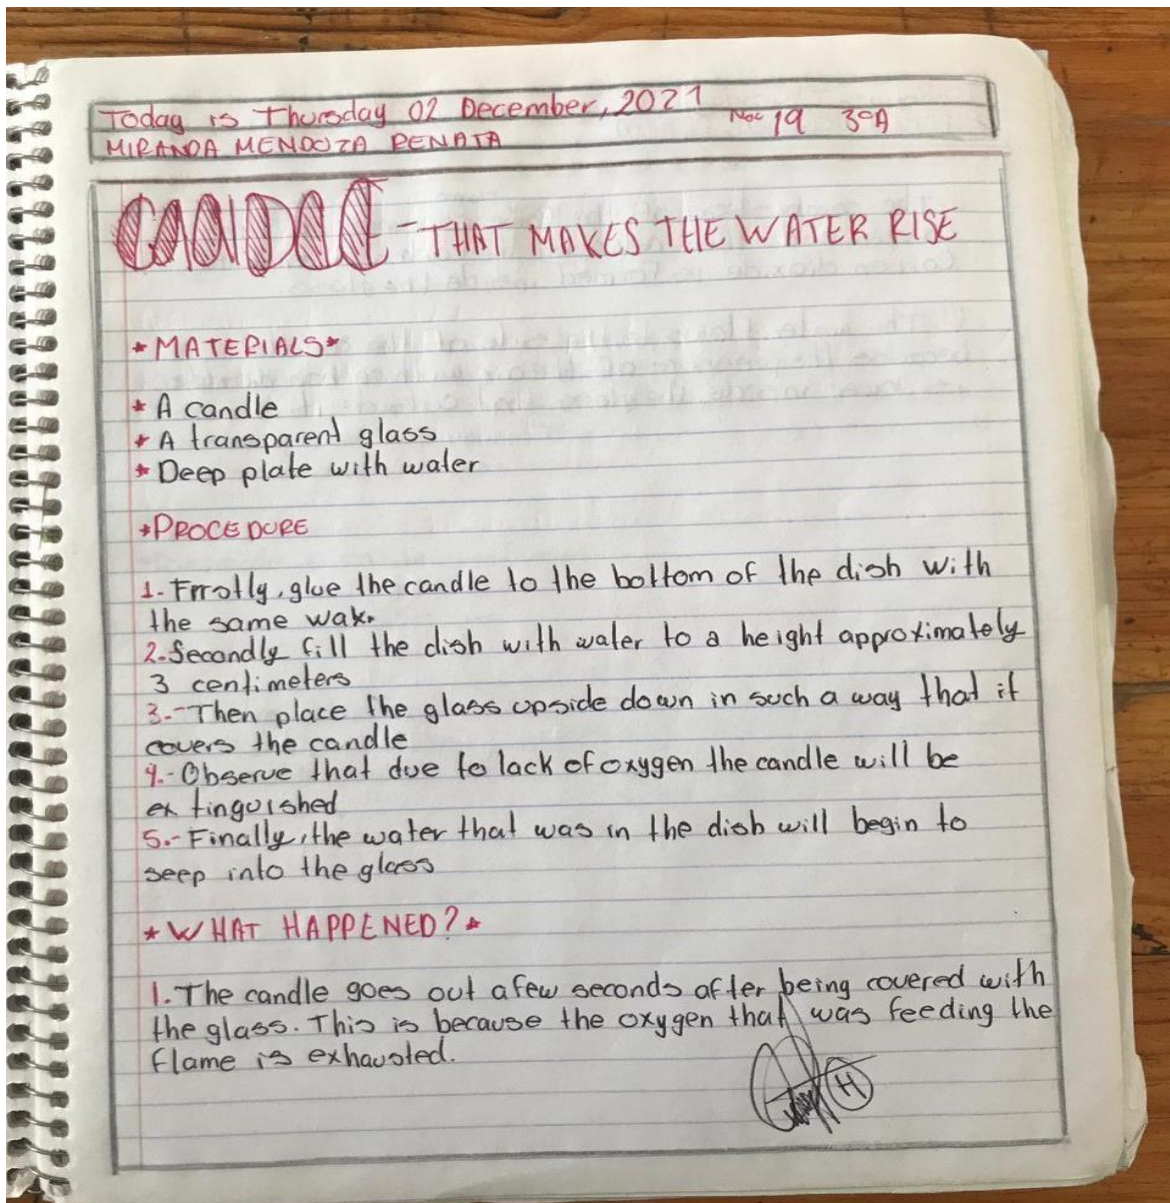 Today is Thursday 02 December, 2021 19 3°A
MIRANDA MENDOZA RENATA
CANDLE - THAT MAKES THE WATER RISE
*MATERIALS*
* A candle
* A transparent glass
* Deep plate with water
*PROCEDURE
1.- Firstly, glue the candle to the bottom of the dish with
the same wax.
2.- Secondly fill the dish with water to a height approximately
3 centimeters
3.- Then place the glass upside down in such a way that it
covers the candle
4.- Observe that due to lack of oxygen the candle will be
extinguished
5.- Finally, the water that was in the dish will begin to
seep into the glass
* WHAT HAPPENED? *
1. The candle goes out a few seconds after being covered with
the glass. This is because the oxygen that was feeding the
flame is exhausted.
H